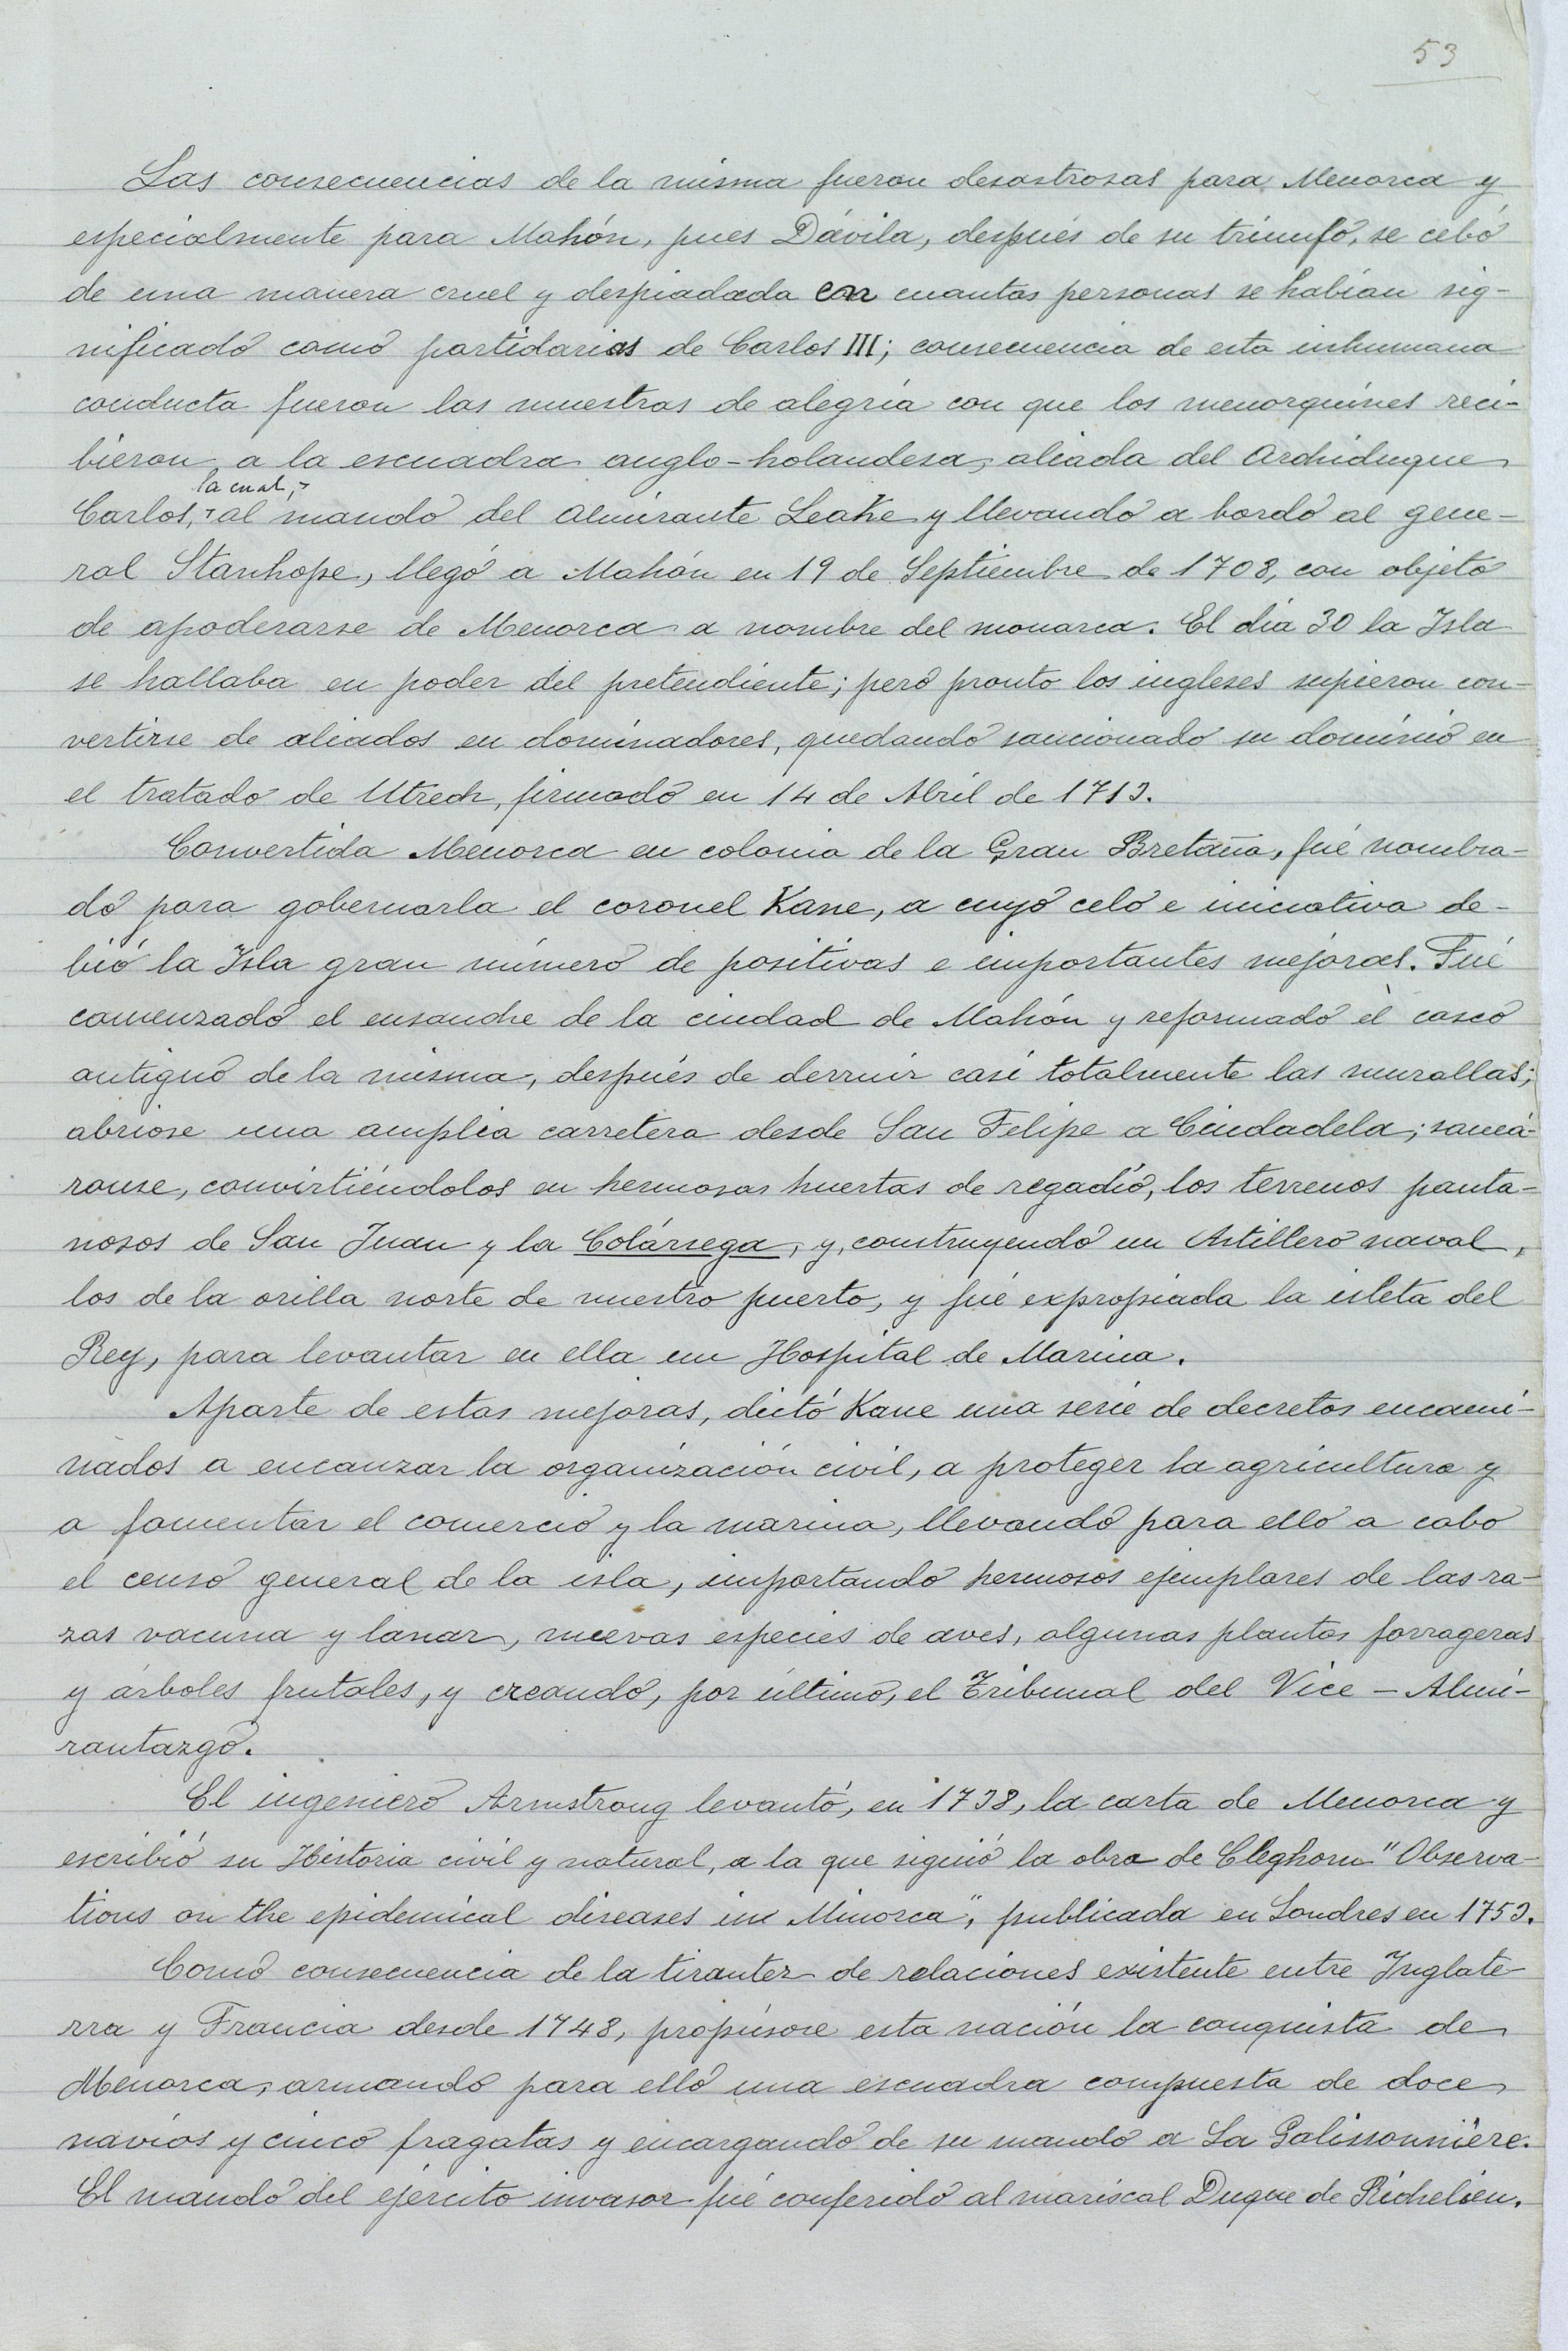 53
Las consecuencias de la misma fueron desastrosas para Menorca y
especialmente para Mahón, pues Dávila, después de su triunfo, se cebó
de una manera cruel y despiadada con cuantas personas se habían sig-
nificado como partidarias de Carlos III; consecuencia de esta inhumana
conducta fueron las muestras de alegría con que los menorquines reci-
bieron a la escuadra anglo-holandesa, aliada del Archiduque
la cual,
Carlos, al mando del Almirante Leake y llevando a bordo al gene-
ral Stanhope, llegó a Mahón en 19 de Septiembre de 1708, con objeto
de apoderarse de Menorca a nombre del monarca. El día 30 la Isla
se hallaba en poder del pretendiente; pero pronto los ingleses supieron con-
vertirse de aliados en dominadores, quedando sancionado su dominio en
el tratado de Utrech, firmado en 14 de Abril de 1713.
Convertida Menorca en colonia de la Gran Bretaña, fué nombra-
do para gobernarla el coronel Kane, a cuyo celo e iniciativa de-
bió la Isla gran número de positivas e importantes mejoras. Fué
comenzado el ensanche de la ciudad de Mahón y reformado el casco
antiguo de la misma, después de derruir casi totalmente las murallas;
abriose una amplia carretera desde San Felipe a Ciudadela; saneá-
ronse, convirtiéndolos en hermosas huertas de regadío, los terrenos panta-
nosos de San Juan y la Colársega, y, construyendo un Astillero naval,
los de la orilla norte de nuestro puerto, y fué expropiada la isleta del
Rey, para levantar en ella un Hospital de Marina.
Aparte de estas mejoras, dictó Kane una serie de decretos encami-
nados a encauzar la organización civil, a proteger la agricultura y
a fomentar el comercio y la marina, llevando para ello a cabo
el censo general de la isla, importando hermosos ejemplares de las ra-
zas vacuna y lanar, nuevas especies de aves, algunas plantas forrageras
y árboles frutales, y creando, por último, el Tribunal del Vice-Almi-
rantazgo.
El ingeniero Armstrong levantó, en 1738, la carta de Menorca y
escribió su Historia civil y natural, a la que siguió la obra de Cleghorn "Observa-
tions on the epidemical diseases in Minorca", publicada en Londres en 1753.
Como consecuencia de la tirantez de relaciones existente entre Inglate-
rra y Francia desde 1748, propúsose esta nación la conquista de
Menorca, armando para ello una escuadra compuesta de doce
navíos y cinco fragatas y encargando de su mando a La Galissonnière.
El mando del ejército invasor fué conferido al mariscal Duque de Richelieu.